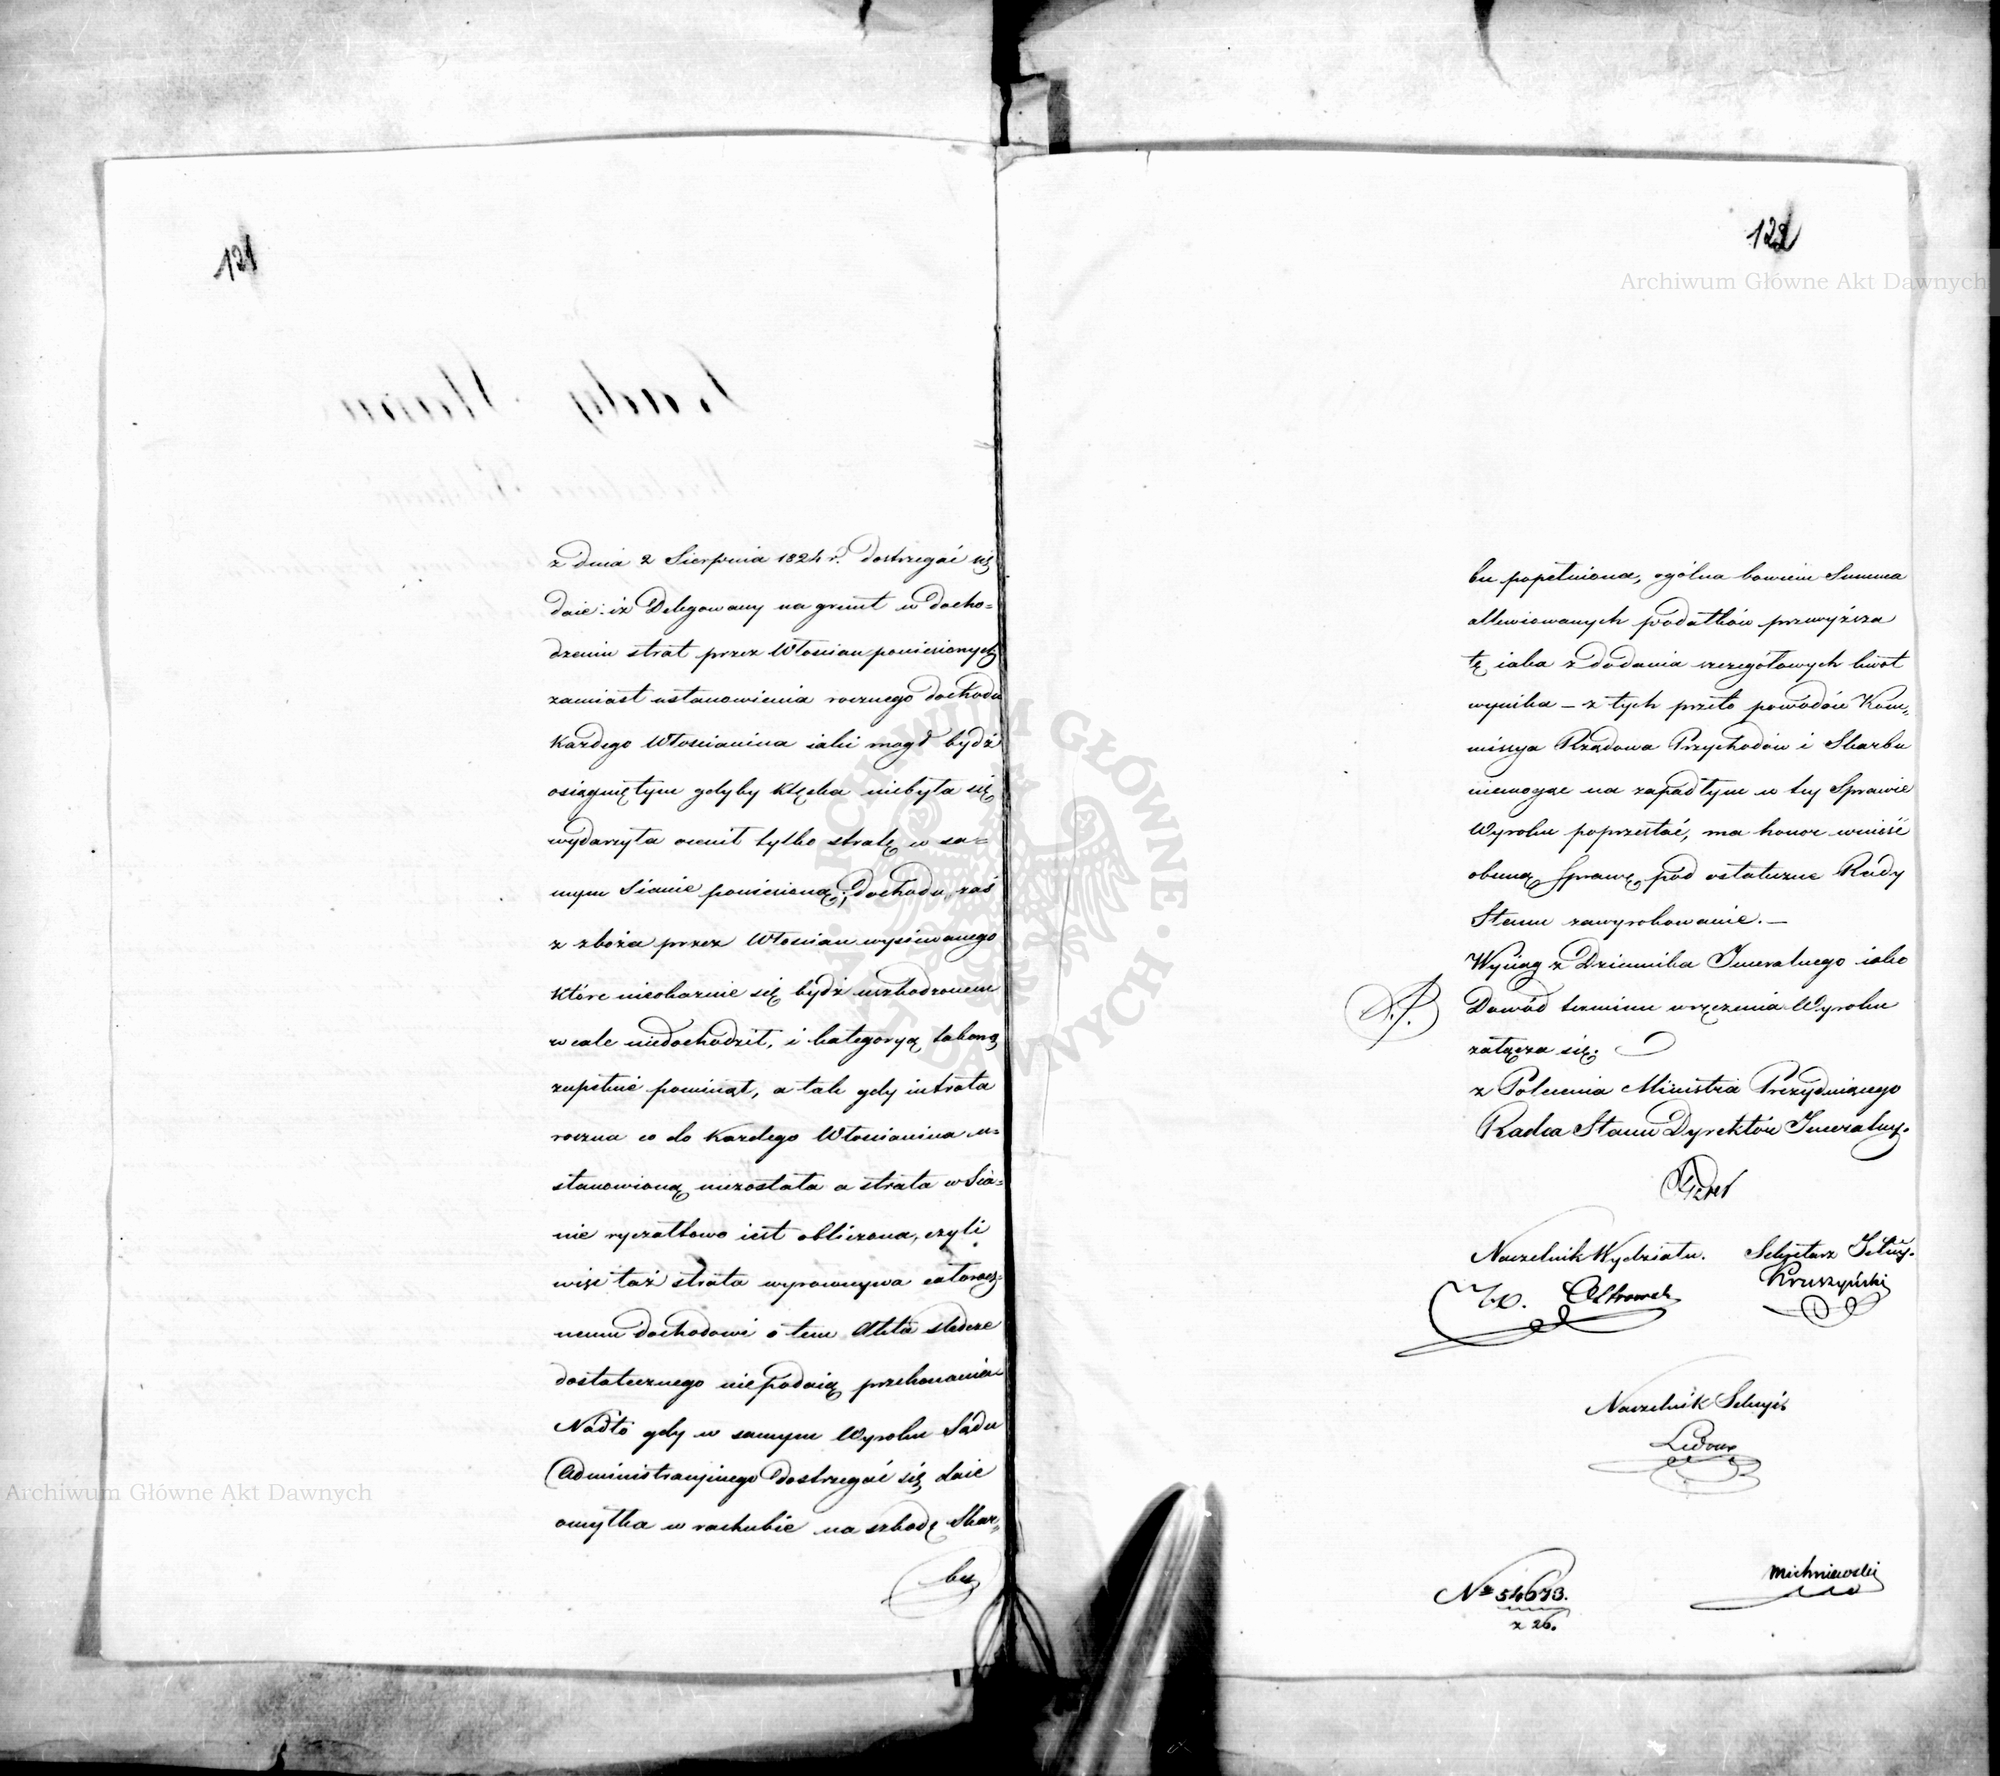 121
z dnia 2 Sierpnia 1824 r. dostrzegać się
daie: iż Delegowany na grunt w docho=
dzeniu strat przez Włościan poniesionych
zamiast ustanowienia rocznego dochodu
każdego Włościanina iaki mógł bydź
osiągniętym gdyby klęska niebyła się
wydarzyła ocenił tylko stratę w sa=
mym Sianie poniesioną; dochodu zaś
z zboża przez Włościan wysiewanego
które nieokazuie się bydź uszkodzonem
wcale niedochodził, i kategoryą takową
zupełnie pominął, a tak gdy intrata
roczna co do każdego Włościanina u=
stanowioną niezostała a strata w Sia=
nie ryczałtowo iest obliczona, czyli
więc taż strata wyrownywa całorocz=
nemu dochodowi o tem Akta śledcze
dostatecznego niepodaią przekonania
Nadto gdy w samym Wyroku Sądu
Administracyinego dostrzegać się daie
omyłka w rachubie na szkodę Skar=
bu
122
bu popełniona, ogólna bowiem Summa
allewiowanych podatków przewyższa
tę iaka z dodania szczegółowych kwot
wynika – z tych przeto powodów Kom=
missya Rządowa Przychodów i Skarbu
niemogąc na zapadłym w tey Sprawie
Wyroku poprzestać, ma honor wnieść
obecną Sprawę pod ostateczne Rady
Stanu zawyrokowanie. –
Wyciąg z Dziennika Jeneralnego iako
Dowód terminu wręczenia Wyroku
załącza się.
z Polecenia Ministra Prezyduiącego
Radca Stanu Dyrektor Jeneralny.
Naczelnik Wydziału. Sekretarz Jlny.
Kruszyński
Naczelnik Sekcyi
Michniewski
№ 54673.
z 26.
Archiwum Główne Akt Dawnych
Archiwum Główne Akt Dawnych
ARCHIWUM GŁÓWNE AKT DAWNYCH